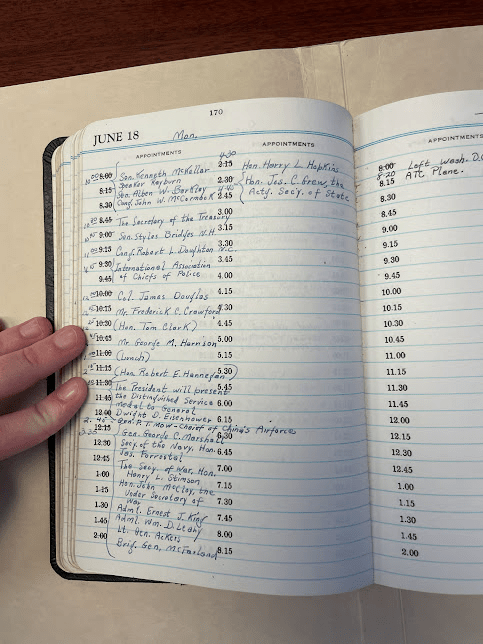 170
JUNE 18 Mon.
APPOINTMENTS APPOINTMENTS
8.00 Sen. Kenneth McKellar
8.15 Speaker Rayburn
Sen. Alben W. Barkley
8.30 Cong. John W. McCormack
8.45 The Secretary of the Treasury
9.00 Sen. Styles Bridges N.H.
9.15 Cong. Robert L. Doughton
9.30 International Association
9.45 of Chiefs of Police
10.00 Col. James Douglas
10.15 Mr. Frederick C. Crawford
10.30 (Hon. Tom Clark)
10.45 Mr. George M. Harrison
11.00 (Lunch)
11.15 (Hon. Robert E. Hannegan)
11.30 The President will present
11.45 the Distinguished Service
medal to General
12.00 Dwight D. Eisenhower
12.15 Gen. P.T. Mow-chief of China's Airforce
Gen. George C. Marshall
12.30 Secy. of the Navy, Hon.
12.45 Jas. Forrestal
The Secy. of War, Hon.
1.00 Henry L. Stimson
1.15 Hon. John McCloy, the
Under Secretary of
1.30 War
Adml. Ernest J. King
1.45 Adml. Wm. D. Leahy
2.00 Lt. Gen.
Brig. Gen. McFarland
4:30
2.15 Hon. Harry L. Hopkins
2.30 Hon. Jos. C. Grew, the
2.45 Actg. Secy. of State
3.00
3.15
3.30
3.45
4.00
4.15
4.30
4.45
5.00
5.15
5.30
5.45
6.00
6.15
6.30
6.45
7.00
7.15
7.30
7.45
8.00
8.15
APPOINTMENTS
8.00 Left Wash. D.C.
8.15 AM. Plane.
8.30
8.45
9.00
9.15
9.30
9.45
10.00
10.15
10.30
10.45
11.00
11.15
11.30
11.45
12.00
12.15
12.30
12.45
1.00
1.15
1.30
1.45
2.00